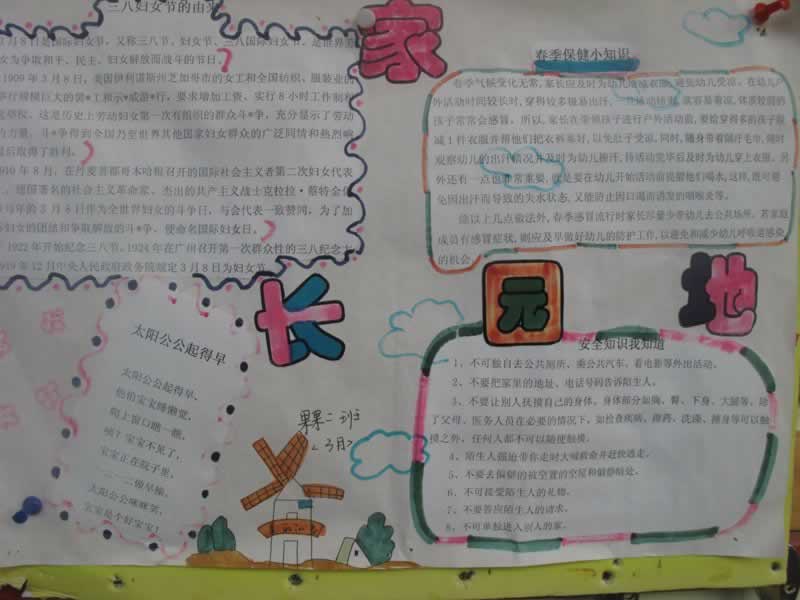 三八妇女节的由来
月8日是国际妇女节，又称三八节、妇女节、三八国际妇女节。是世界
女为争取和平、民主、妇女解放而战斗的节日。
1909年3月8日，美国伊利诺斯州芝加哥市的女工和全国纺织、服装业的
举行规模巨大的罢*工和示*威游*行，要求增加工资、实行8小时工作制和
选举权。这是历史上劳动妇女第一次有组织的群众斗*争，充分显示了劳动
的力量。斗*争得到全国乃至世界其他国家妇女群众的广泛同情和热烈响
最后取得了胜利。
910年8月，在丹麦首都哥本哈根召开的国际社会主义者第二次妇女代表
，德国著名的社会主义革命家、杰出的共产主义战士克拉拉·蔡特金
每年的3月8日作为全世界妇女的斗争日，与会代表一致赞同，为了加
妇女的团结和争取解放的斗争，使命名国际妇女日。
1922年开始纪念三八节。1924年在广州召开第一次群众性的三八纪念
949年12月中央人民政府政务院规定3月8日为妇女节
家
长
园
地
春季保健小知识
春季气候变化无常，家长应及时为幼儿增减衣服，避免幼儿受凉。在幼儿户
外活动时间较长时，穿得较多很易出汗，
孩子常常会感冒。所以，家长在带领孩子进行户外活动前，要给穿得多的孩子脱
减1件衣服并帮他们把衣裤塞好，以免肚子受凉。同时，随身带着隔汗毛巾，随时
观察幼儿的出汗情况并及时为幼儿擦汗，待活动完毕后及时为幼儿穿上衣服。另
外还有一点也非常重要，就是要在幼儿开始活动前提醒他们喝水，这样，既可避
免因出汗而导致的失水状态，又能防止因口渴而诱发的咽喉炎等。
除以上几点做法外，春季感冒流行时家长尽量少带幼儿去公共场所，若家庭
成员有感冒症状，则应及早做好幼儿的防护工作，以避免和减少幼儿呼吸道感染
的机会。
太阳公公起得早
太阳公公起得早，
他怕宝宝睡懒觉，
爬上窗口瞧一瞧，
咦？宝宝不见了，
宝宝正在院子里，
一二一二做早操，
太阳公公咪咪笑，
宝宝是个好宝宝！
果果二班
<3月>
安全知识我知道
1、不可独自去公共厕所、乘公共汽车、看电影等外出活动。
2、不要把家里的地址、电话号码告诉陌生人。
3、不要让别人抚摸自己的身体。身体部分如胸、臀、下身、大腿等，除
了父母、医务人员在必要的情况下，如检查疾病、擦药、洗澡、擦身等可以触
摸之外，任何人都不可以随便触摸。
4、陌生人强迫带你走时大喊救命并赶快逃走。
5、不要去偏僻的被空置的空屋和僻静暗处。
6、不可接受陌生人的礼物。
7、不要答应陌生人的请求。
8、不可单独进入别人的家。